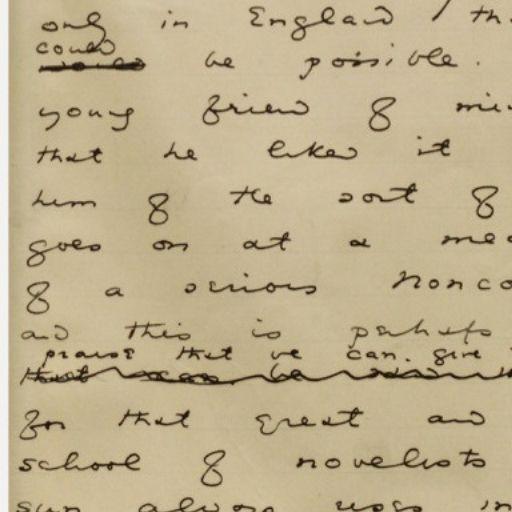 only in England th
could
would be possible.
young friend of mi
that he liked it
him of the sort of
goes on at a mea
of a serious Nonco
and this is perhaps
praise that we can. give
that can be
for that great and
school of novelists
sun always in